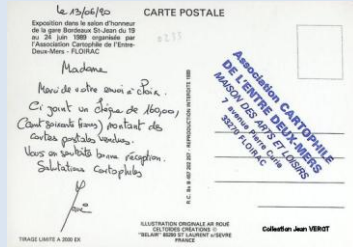 Le 13/06/90
CARTE POSTALE
Exposition dans le salon d'honneur
de la gare Bordeaux St-Jean du 19
au 24 juin 1989 organisée par
l'Association Cartophile de l'Entre-
Deux-Mers - FLOIRAC
Madame
Merci de votre envoi
Ci joint un chèque de 160,00,
(Cent soixante francs) montant des
cartes postales vendues.
Vous en souhaite bonne réception.
Salutations Cartophiles
REPRODUCTION INTERDITE 1989
Association CARTOPHILE
DE L'ENTRE DEUX-MERS
MAISON DES ARTS ET LOISIRS
7 avenue Pierre Curie
33270 FLOIRAC
Collection Jean VERGT
ILLUSTRATION ORIGINALE AR ROUÉ
CELTORDES CRÉATIONS ©
"BELAIR" 85290 ST LAURENT s/SEVRE
FRANCE
TIRAGE LIMITÉ A 2000 EX